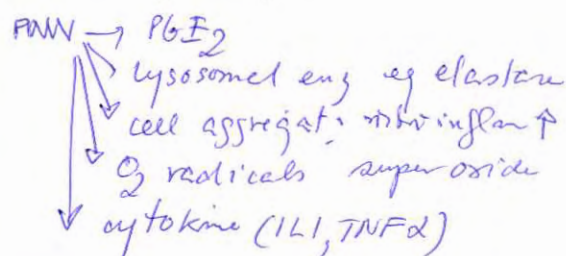 PMN → PGE2
lysosomal enz eg elastase
cell aggregat: inflam ↑
O2 radicals superoxide
cytokine (IL1, TNFα)